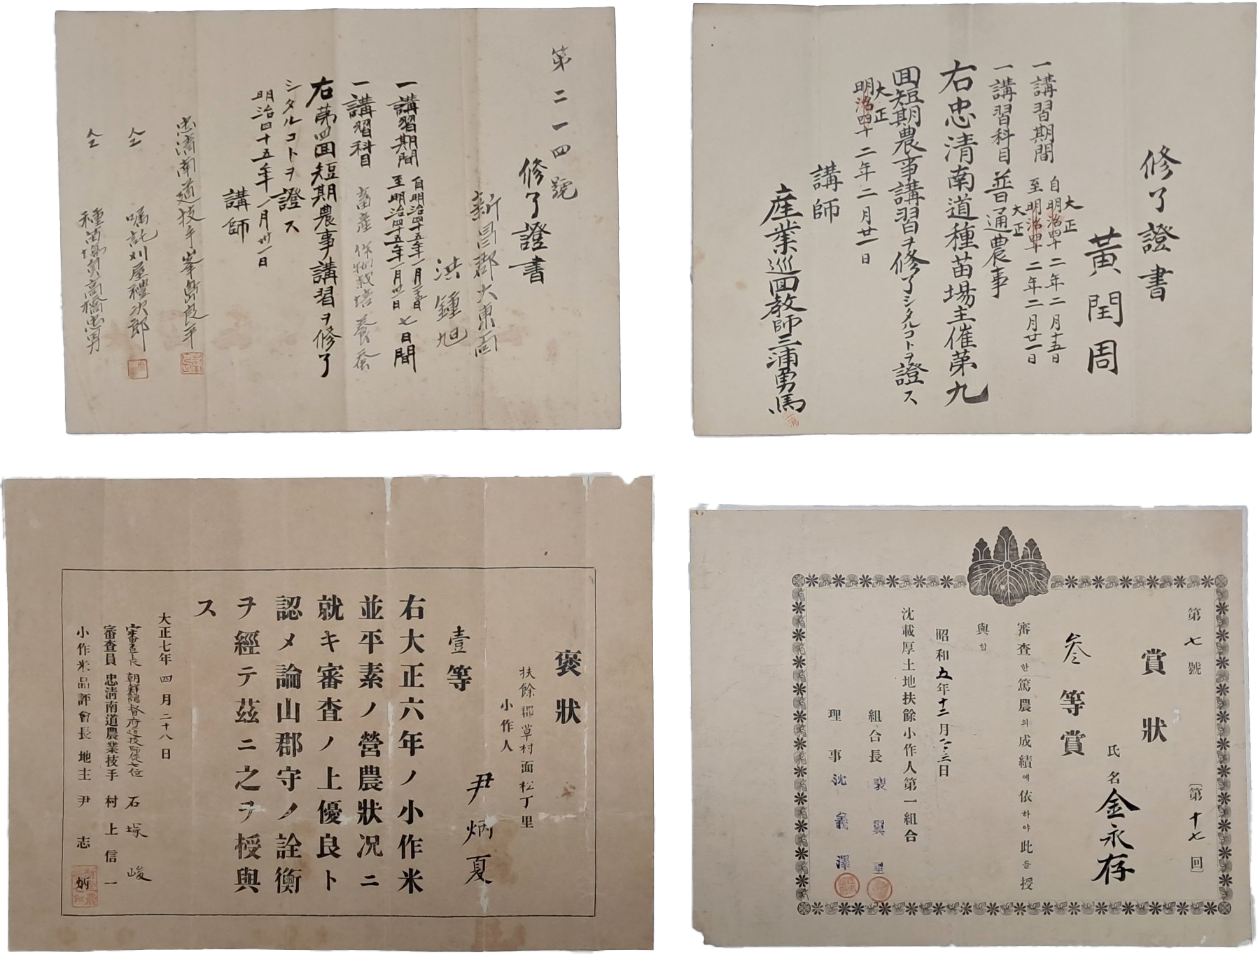 第二一四號
修了證書
新昌郡大東面
洪鍾旭
一講習期間 自明治四十五年一月廿五日 至明治四十五年一月卅一日 七日間
一講習科目 畜産 作物栽培 養蚕
右第四回短期農事講習ヲ修了
シタルコトヲ證ス
明治四十五年一月卅一日
講師
忠清南道技手
仝 嘱託刈屋禮次郎
仝 種苗場
修了證書
黃閏周
一講習期間 自大正明治四十二年二月十五日 至大正明治四十二年二月廿一日
一講習科目 普通農事
右忠清南道種苗場主催第九
回短期農事講習ヲ修了シタルコトヲ證ス
大正明治四十二年二月廿一日
講師
産業巡回教師三浦勇馬
褒狀
扶餘郡草村面松丁里
小作人
尹炳夏
壹等
右大正六年ノ小作米
並平素ノ營農狀況ニ
就キ審査ノ上優良ト
認メ論山郡守ノ詮衡
ヲ經テ茲ニ之ヲ授與
ス
大正七年四月二十八日
審査長 朝鮮總督府道技師從七位 石塚峻
審査員 忠清南道農業技手 村上信一
小作米品評會長 地主 尹志炳
第七號 〔第十七回〕
賞狀
氏名 金永存
叄等賞
審査한篤農의成績에依하야此를授
與함
昭和五年十二月二三日
沈載厚土地扶餘小作人第一組合
組合長 裴翼
理事 沈義澤